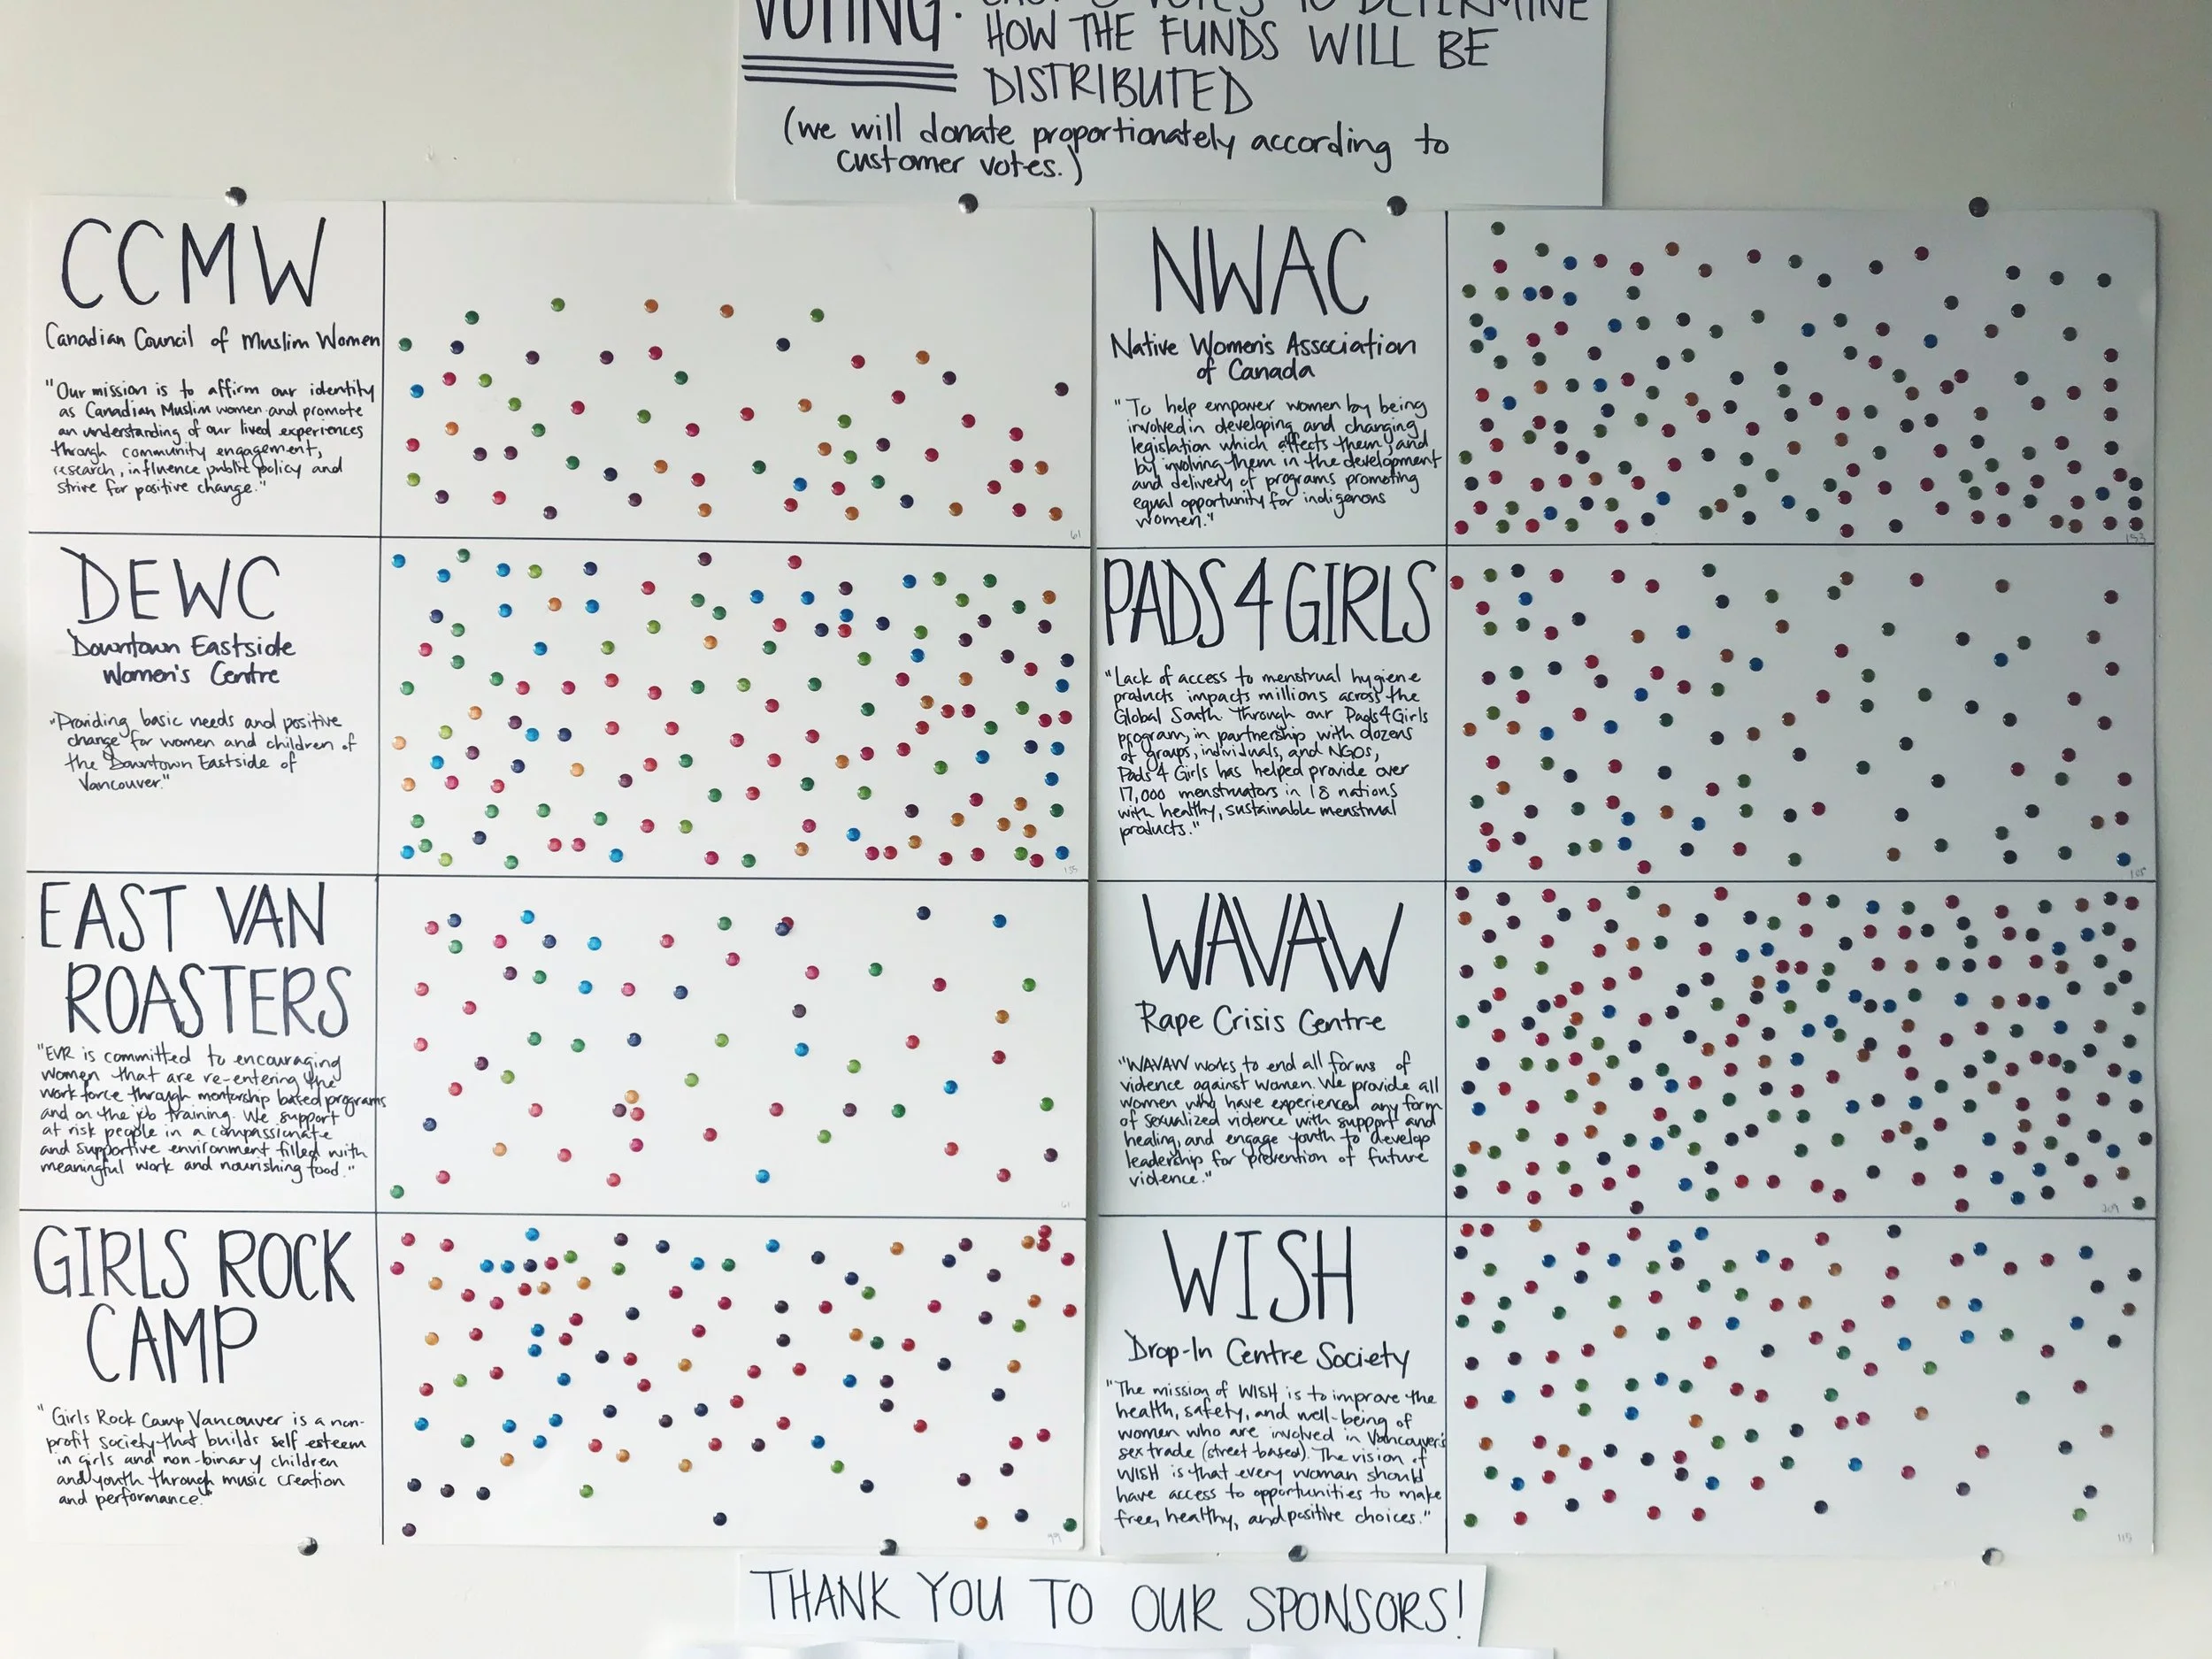 VOTING: CAST 3 VOTES TO DETERMINE
HOW THE FUNDS WILL BE
DISTRIBUTED
(we will donate proportionately according to
customer votes.)
CCMW
Canadian Council of Muslim Women
"Our mission is to affirm our identity
as Canadian Muslim women and promote
an understanding of our lived experiences
through community engagement,
research, influence public policy and
strive for positive change."
61
DEWC
Downtown Eastside
Women's Centre
"Providing basic needs and positive
change for women and children of
the Downtown Eastside of
Vancouver."
EAST VAN
ROASTERS
"EVR is committed to encouraging
women that are re-entering the
work force through mentorship based programs
and on the job training. We support
at risk people in a compassionate
and supportive environment filled with
meaningful work and nourishing food."
61
GIRLS ROCK
CAMP
"Girls Rock Camp Vancouver is a non-
profit society that builds self esteem
in girls and non-binary children
and youth through music creation
and performance."
99
NWAC
Native Women's Association
of Canada
"To help empower women by being
involved in developing and changing
legislation which affects them, and
by involving them in the development
and delivery of programs promoting
equal opportunity for indigenous
women."
153
PADS4GIRLS
"Lack of access to menstrual hygiene
products impacts millions across the
Global South. Through our Pads4Girls
program, in partnership with dozens
of groups, individuals, and NGOs,
Pads4Girls has helped provide over
17,000 menstruators in 18 nations
with healthy, sustainable menstrual
products."
WAVAW
Rape Crisis Centre
"WAVAW works to end all forms of
violence against women. We provide all
women who have experienced any form
of sexualized violence with support and
healing, and engage youth to develop
leadership for prevention of future
violence."
209
WISH
Drop-In Centre Society
"The mission of WISH is to improve the
health, safety, and well-being of
women who are involved in Vancouver's
sex trade (street based). The vision of
WISH is that every woman should
have access to opportunities to make
free, healthy, and positive choices."
115
THANK YOU TO OUR SPONSORS!